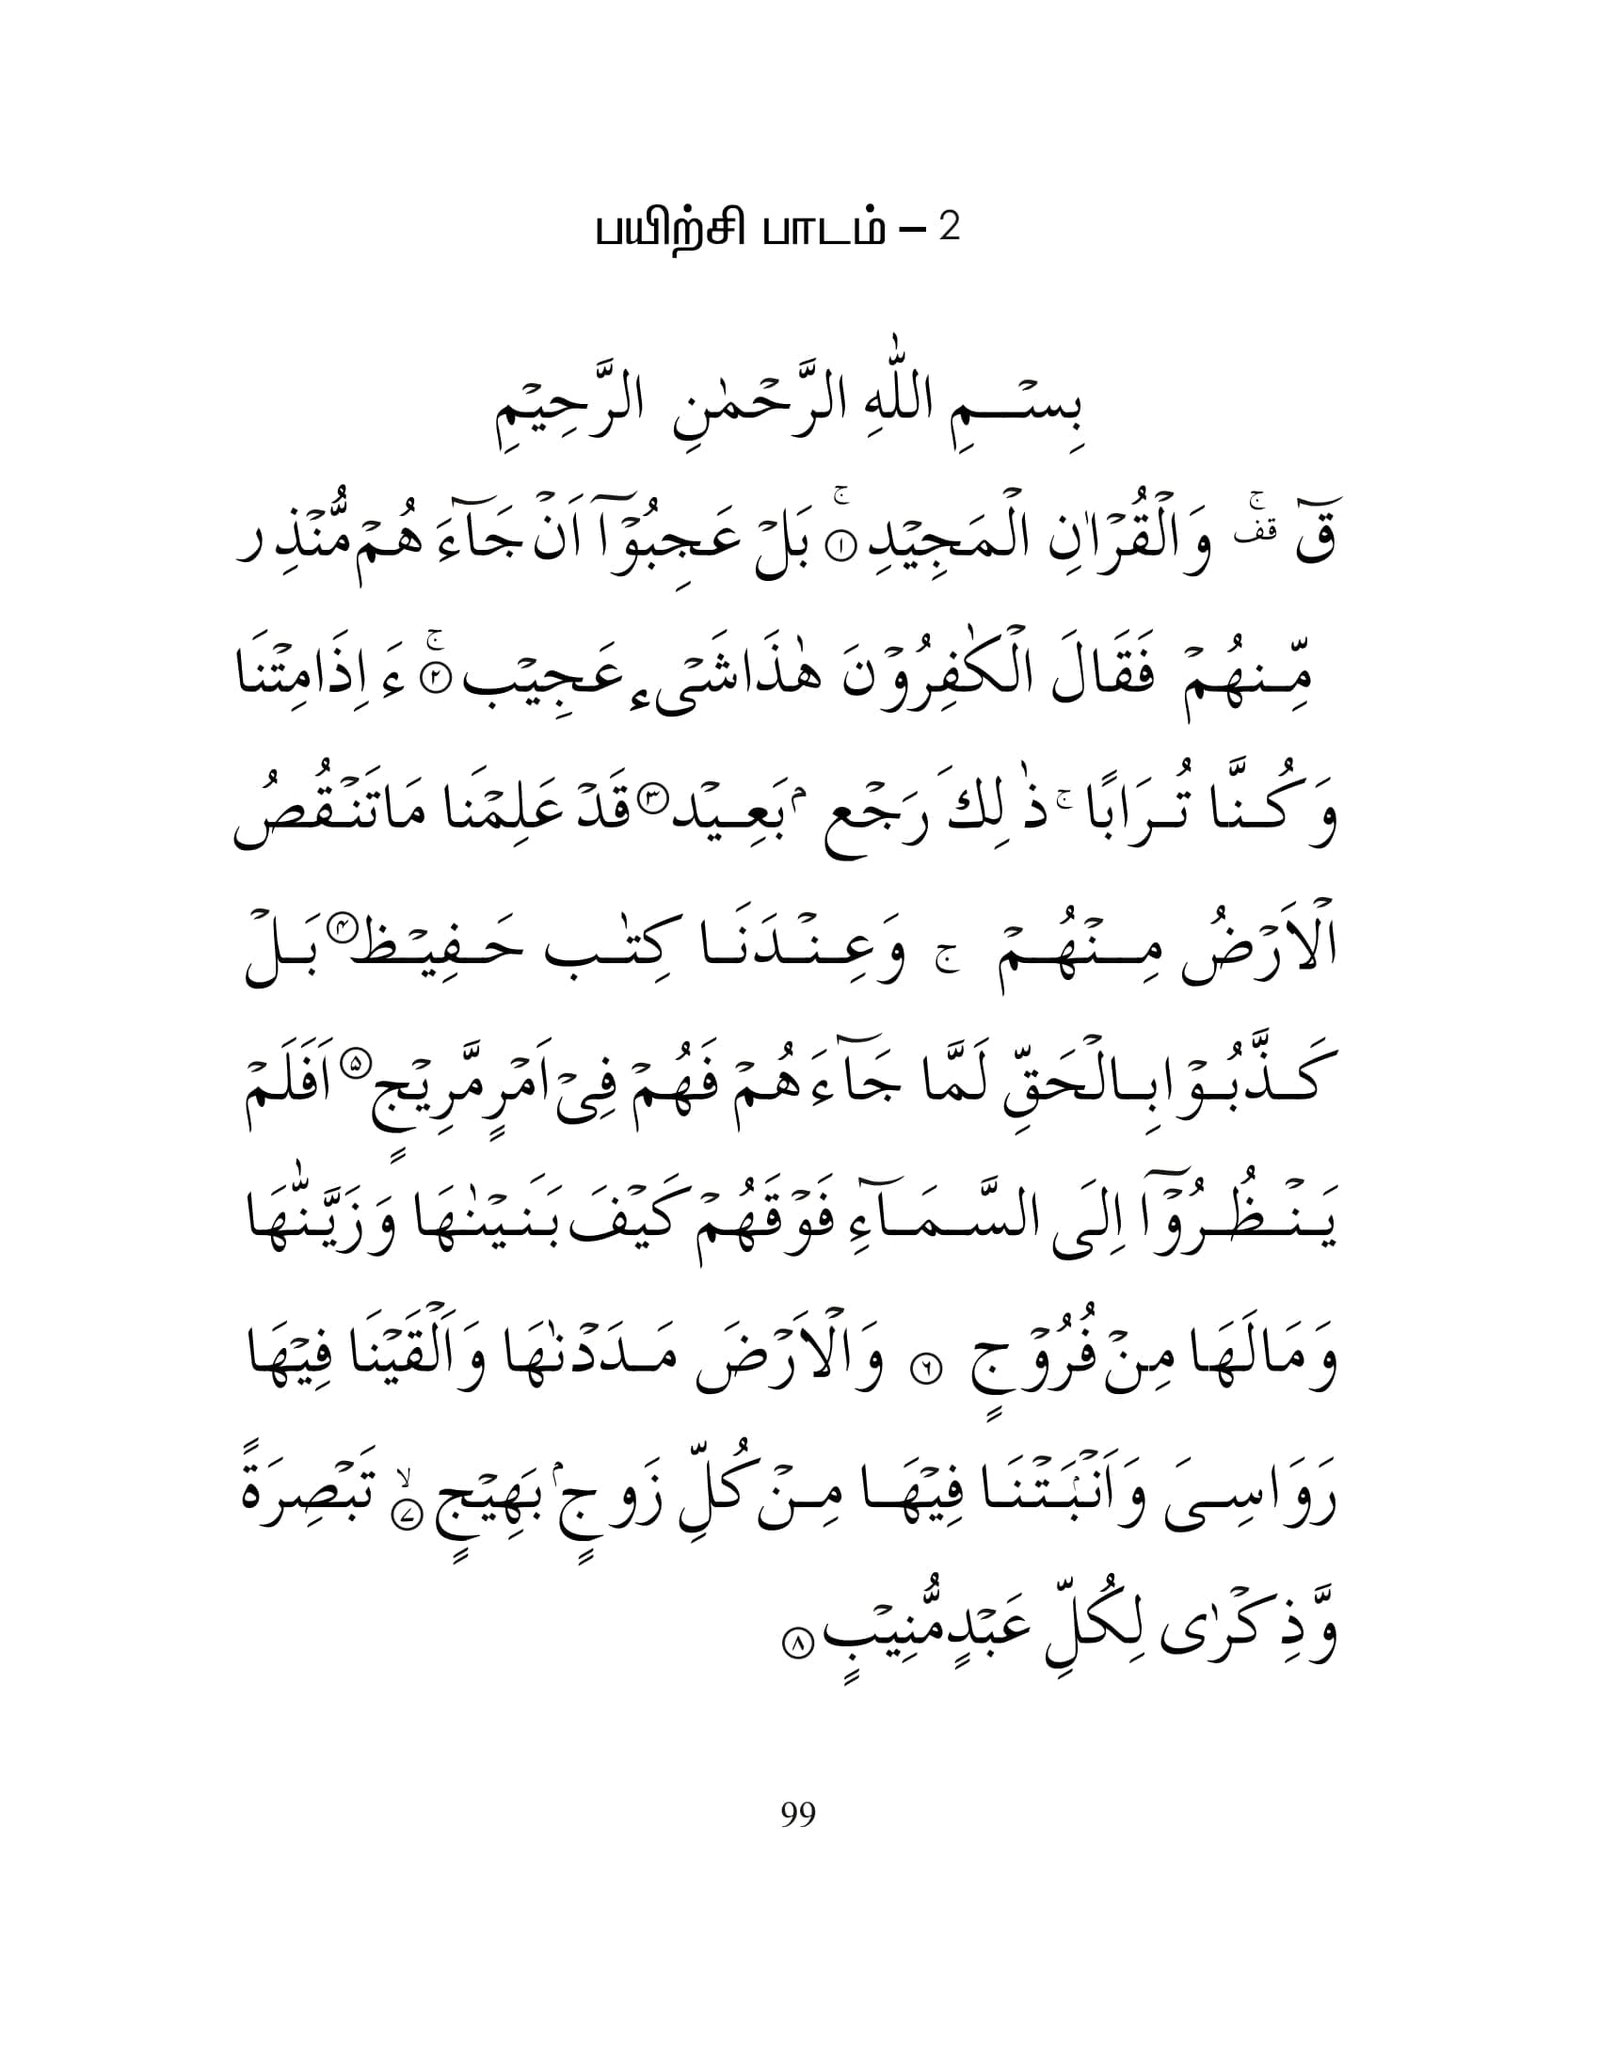 பயிற்சி பாடம் – 2
بِسْمِ اللّٰهِ الرَّحْمٰنِ الرَّحِيْمِ
قٓ قف ۚ وَالْقُرْاٰنِ الْمَجِيْدِ ۚ‏﴿۱﴾ بَلْ عَجِبُوْۤا اَنْ جَآءَ هُمْ مُّنْذِر
مِّنهُمْ فَقَالَ الْكٰفِرُوْنَ هٰذَا شَىْء عَجِيْب ۚ‏﴿۲﴾ ءَ اِذَا مِتْنَا
وَ كُنَّا تُرَابًا ۚ ذٰ لِكَ رَجْع ۢ بَعِيْد ﴿۳﴾ قَدْ عَلِمْنَا مَا تَنْقُصُ
الْاَرْضُ مِنْهُمْ ج وَعِنْدَنَا كِتٰب حَفِيْظ ﴿۴﴾ بَلْ
كَذَّبُوْا بِالْحَقِّ لَمَّا جَآءَ هُمْ فَهُمْ فِىْۤ اَمْرٍ مَّرِيْجٍ ﴿۵﴾ اَفَلَمْ
يَنْظُرُوْۤا اِلَى السَّمَآءِ فَوْقَهُمْ كَيْفَ بَنَيْنٰهَا وَ زَيَّنّٰهَا
وَ مَا لَهَا مِنْ فُرُوْجٍ ﴿۶﴾ وَالْاَرْضَ مَدَدْنٰهَا وَ اَلْقَيْنَا فِيْهَا
رَوَاسِىَ وَ اَنْۢبَتْنَا فِيْهَا مِنْ كُلِّ زَوجٍ ۢ بَهِيْجٍ ۙ‏﴿۷﴾ تَبْصِرَةً
وَّذِكْرٰى لِكُلِّ عَبْدٍ مُّنِيْبٍ ﴿۸﴾
99